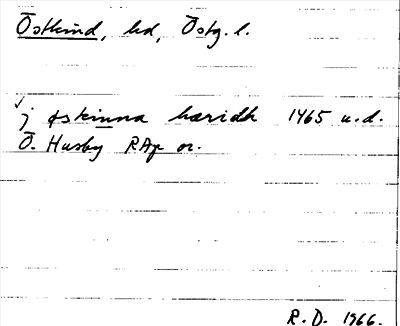 Östkind, hd, Östg. l.
j østkinna hæridh 1465 u.d.
Ö. Husby RAp or.
R.D. 1966.